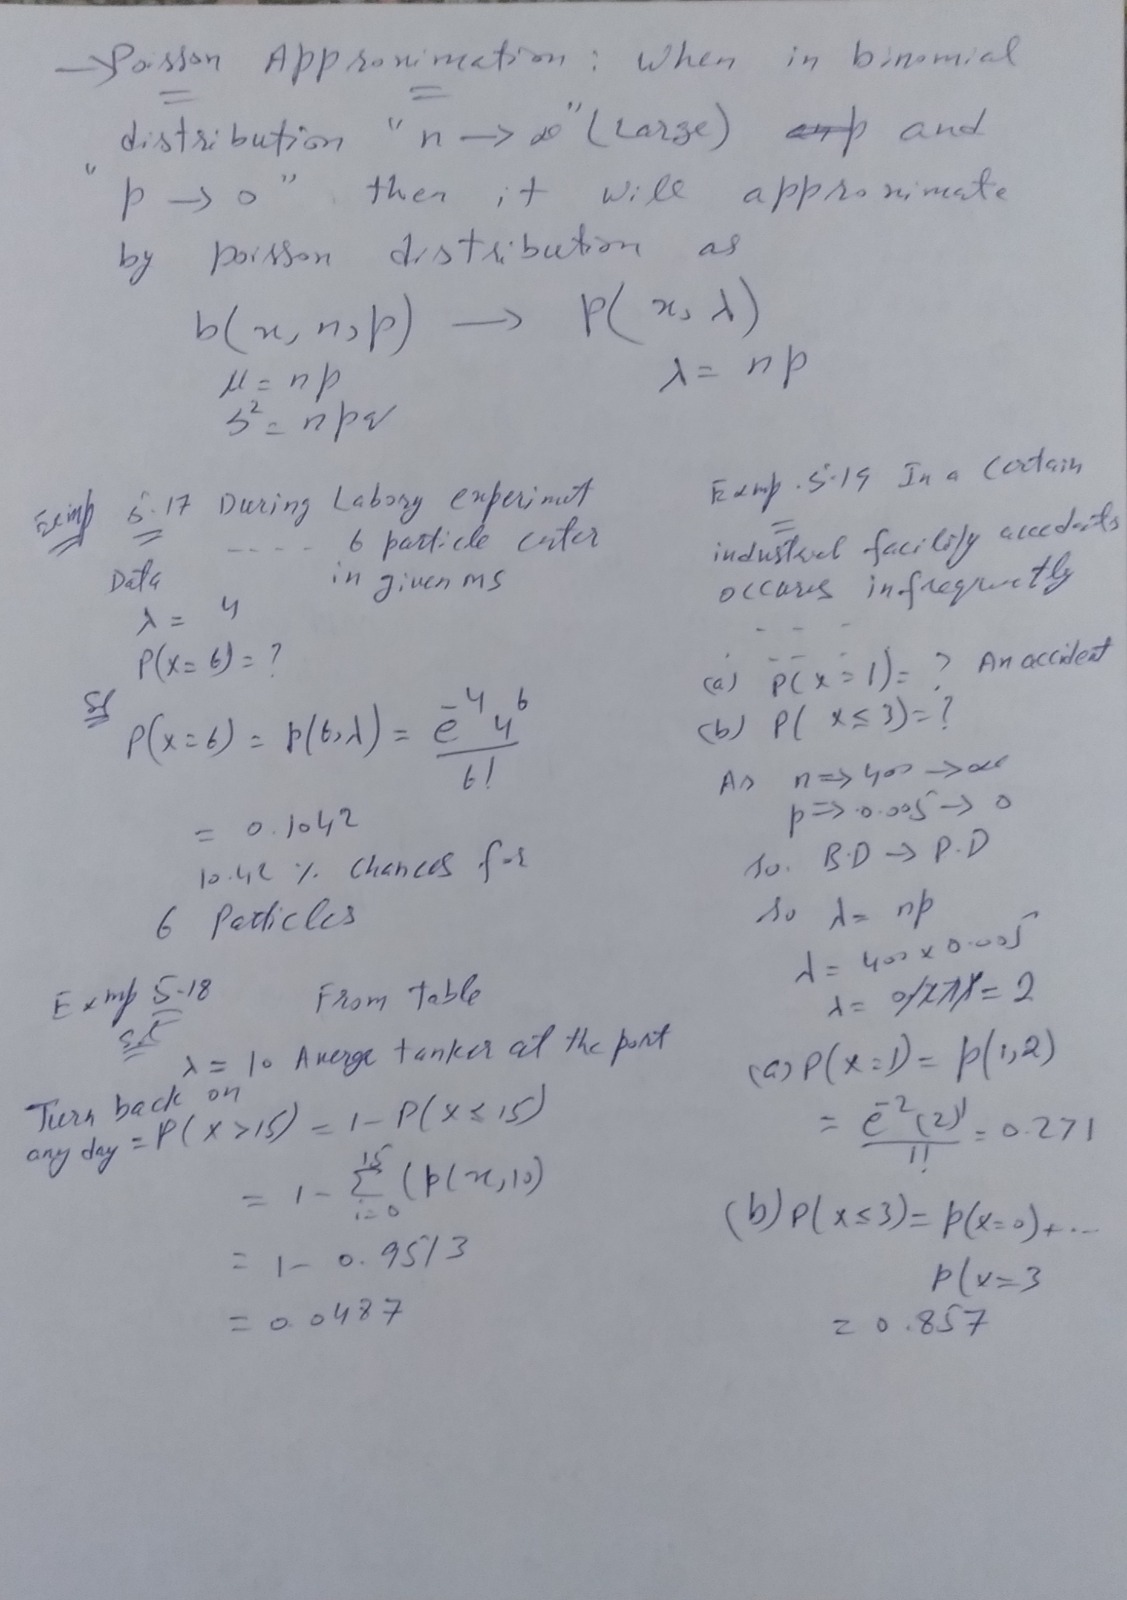 → Poisson Approximation: When in binomial
distribution "n → ∞" (Large) and
"p → 0" then it will approximate
by poisson distribution as
b(x, n, p) → p(x, λ)
μ = np λ = np
S² = npq
Examp 5.17 During Labory experimt
---- 6 particle enter
in given ms
Data
λ = 4
P(x=6) = ?
Sol
P(x=6) = p(6,λ) = e⁻⁴ 4⁶ / 6!
= 0.1042
10.42 % Chances for
6 Particles
Exmp 5-18 From table
Sol
λ = 10 Averge tanker at the port
Turn back on
any day = P(x>15) = 1 - P(x ≤ 15)
= 1 - Σ¹⁵ᵢ₌₀ (p(x,10)
= 1 - 0.9513
= 0.0487
Examp. 5-19 In a Certain
industral facility accedents
occures infrequently
- - -
- - - -
(a) P(x=1) = ? An accident
(b) P(x ≤ 3) = ?
As n => 400 → ∞
p => 0.005 → 0
so. B.D → P.D
so λ = np
λ = 400 x 0.005
λ = = 2
(a) P(x=1) = p(1,2)
= e⁻²(2)¹ / 1! = 0.271
(b) P(x ≤ 3) = p(x=0) + ...
p(x=3
= 0.857